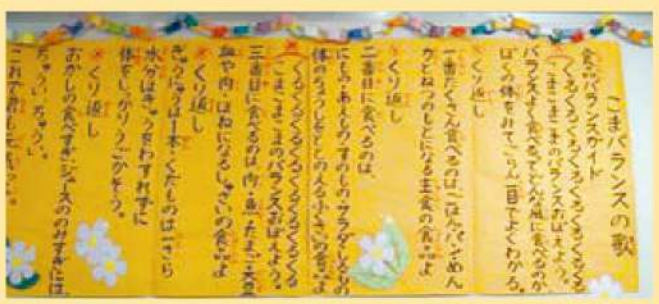 こまバランスの歌
食品バランスガイド
くるくるくるくるくるくるくるくる
こまこまこまのバランスおぼえよう。
バランスよく食べるってどんな風に食べるのか
ぼくの体をみてごらん一目でよくわかる。
くり返し
一番たくさん食べるのはごはん・パン・めん
力とねつのもとになる主食の食品よ
くり返し
二番目に食べるのは、
にもの・あえもの・すのもの・サラダ・しるのみ
体のちょうしをととのえるふくさいの食品よ
くるくるくるくるくるくるくるくる
こまこまこまのバランスおぼえよう。
三番目に食べるのは肉・魚・たまご・大豆
血や肉・ほねになるしゅさいの食品よ
くり返し
ぎゅうにゅうは一本・くだものは一さら
水分ほきゅうをわすれずに
体をしっかりうごかそう。
くり返し
おかしの食べすぎ・ジュースののみすぎには
ちゅうい、ちゅう。